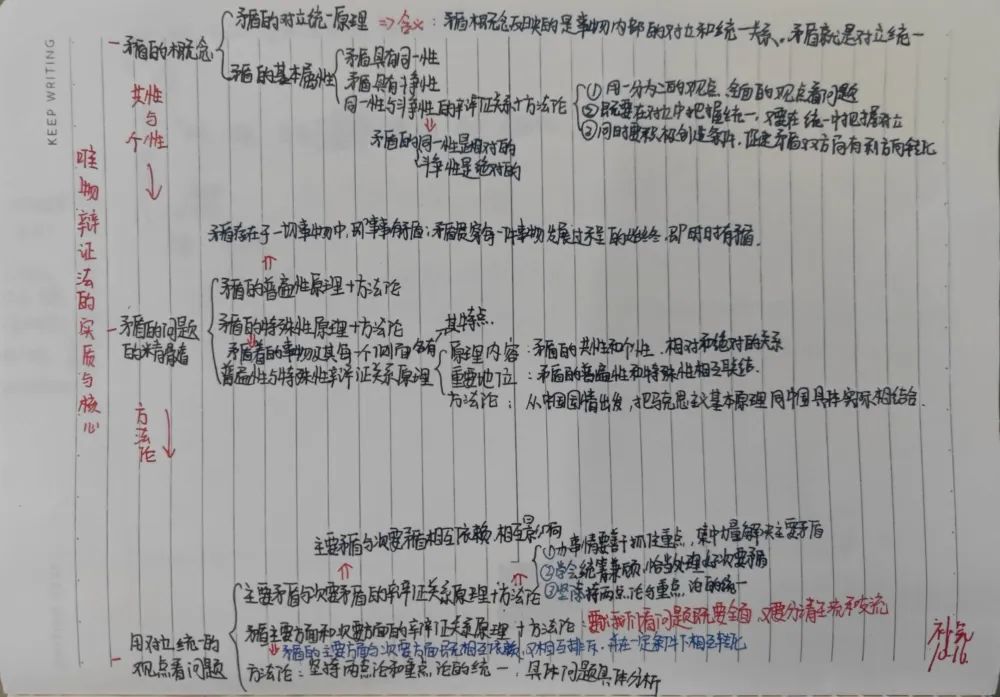 KEEP WRITING
唯物辩证法的实质与核心
共性与个性
方法论
矛盾的概念
矛盾的对立统一原理 => 含义：矛盾概念反映的是事物内部的对立和统一关系。矛盾就是对立统一
矛盾的基本属性
矛盾具有同一性
矛盾具有斗争性
同一性与斗争性的辩证关系+方法论
①用一分为二的观点、全面的观点看问题
②既要在对立中把握统一，又要在统一中把握对立
③同时要积极创造条件，促使矛盾双方向有利方向转化
矛盾的同一性是相对的
斗争性是绝对的
矛盾存在于一切事物中，即事事有矛盾；矛盾贯穿每一件事物发展过程的始终，即时时有矛盾.
矛盾的问题的精髓
矛盾的普遍性原理+方法论
矛盾的特殊性原理+方法论
矛盾着的事物及其每一个侧面各有其特点.
普遍性与特殊性辩证关系原理
原理内容：矛盾的共性和个性、相对和绝对的关系
重要地位：矛盾的普遍性和特殊性相互联结.
方法论：从中国国情出发，把马克思主义基本原理同中国具体实际相结合.
主要矛盾与次要矛盾相互依赖、相互影响
用对立统一的观点看问题
主要矛盾与次要矛盾的辩证关系原理+方法论
①办事情要善于抓住重点，集中力量解决主要矛盾
②学会统筹兼顾，恰当处理好次要矛盾
③坚持两点论与重点论的统一
矛盾主要方面和次要方面的辩证关系原理+方法论：要求我们看问题既要全面，又要分清主流和支流
矛盾的主要方面与次要方面既相互依赖，又相互排斥，并在一定条件下相互转化
方法论：坚持两点论和重点论的统一，具体问题具体分析